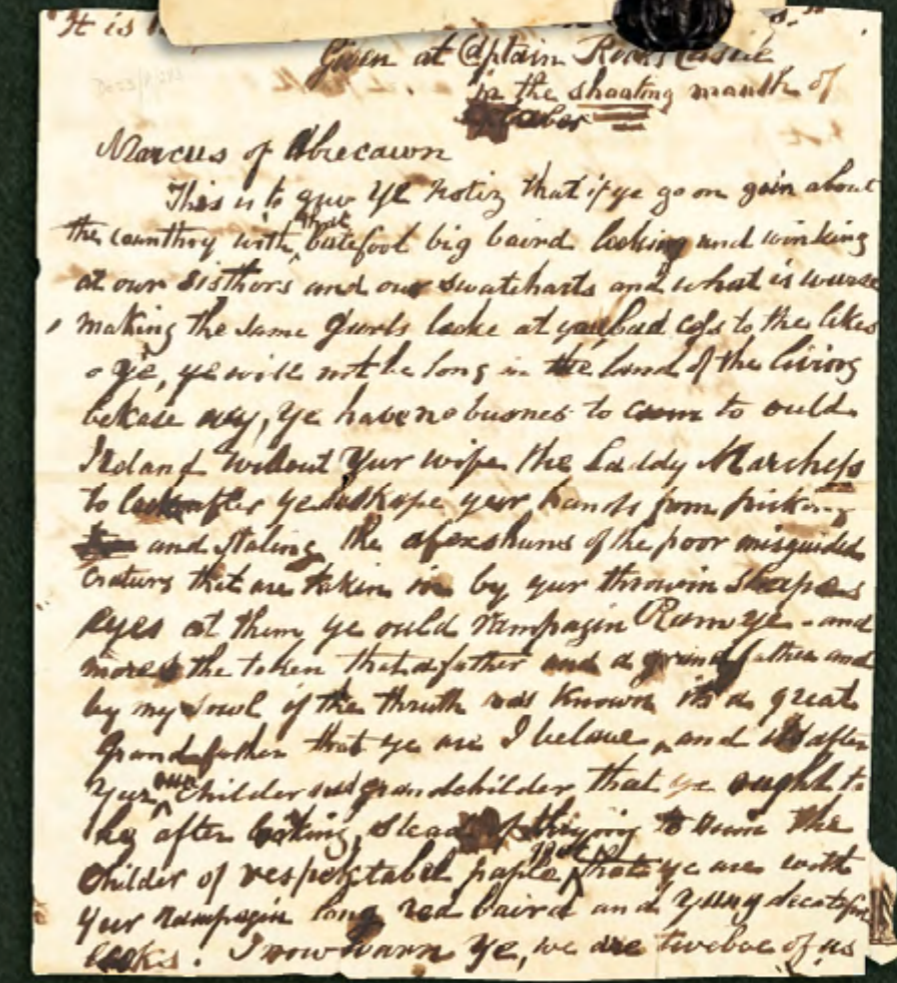 "It is
Given at Captain Rocks Castle
in the shooting month of
October
Marcus of Abrecawn
This is to give ye notiz that if ye go on goin about
the counthry with that batefoot big baird looking and winking
at our sisthors and our swateharts and what is wurse
making the same gurls looke at you bad cess to the likes
o ye, ye will not be long in the land of the living
bekase wy, ye have no busnes to cum to ould
Ireland without yur wife the Laddy Marchess
to look after ye to kape your hands from picking
and staling the afexshuns of the poor misguided
craturs that are taken in by yur throwin sheapes
eyes at them, ye ould rampagin Ram ye - and
more the token that a father and a grandfather and
by my sowl if the thruth was known its a great
Grandfather that ye are I belave, and its after
your own childer and grandchilder that ye ought to
be after looking, stead of thrying to ruin the
childer of respektabel people that ye are with
your rampagin long red baird and young decateful
looks. I now warn ye, we are twelve of us